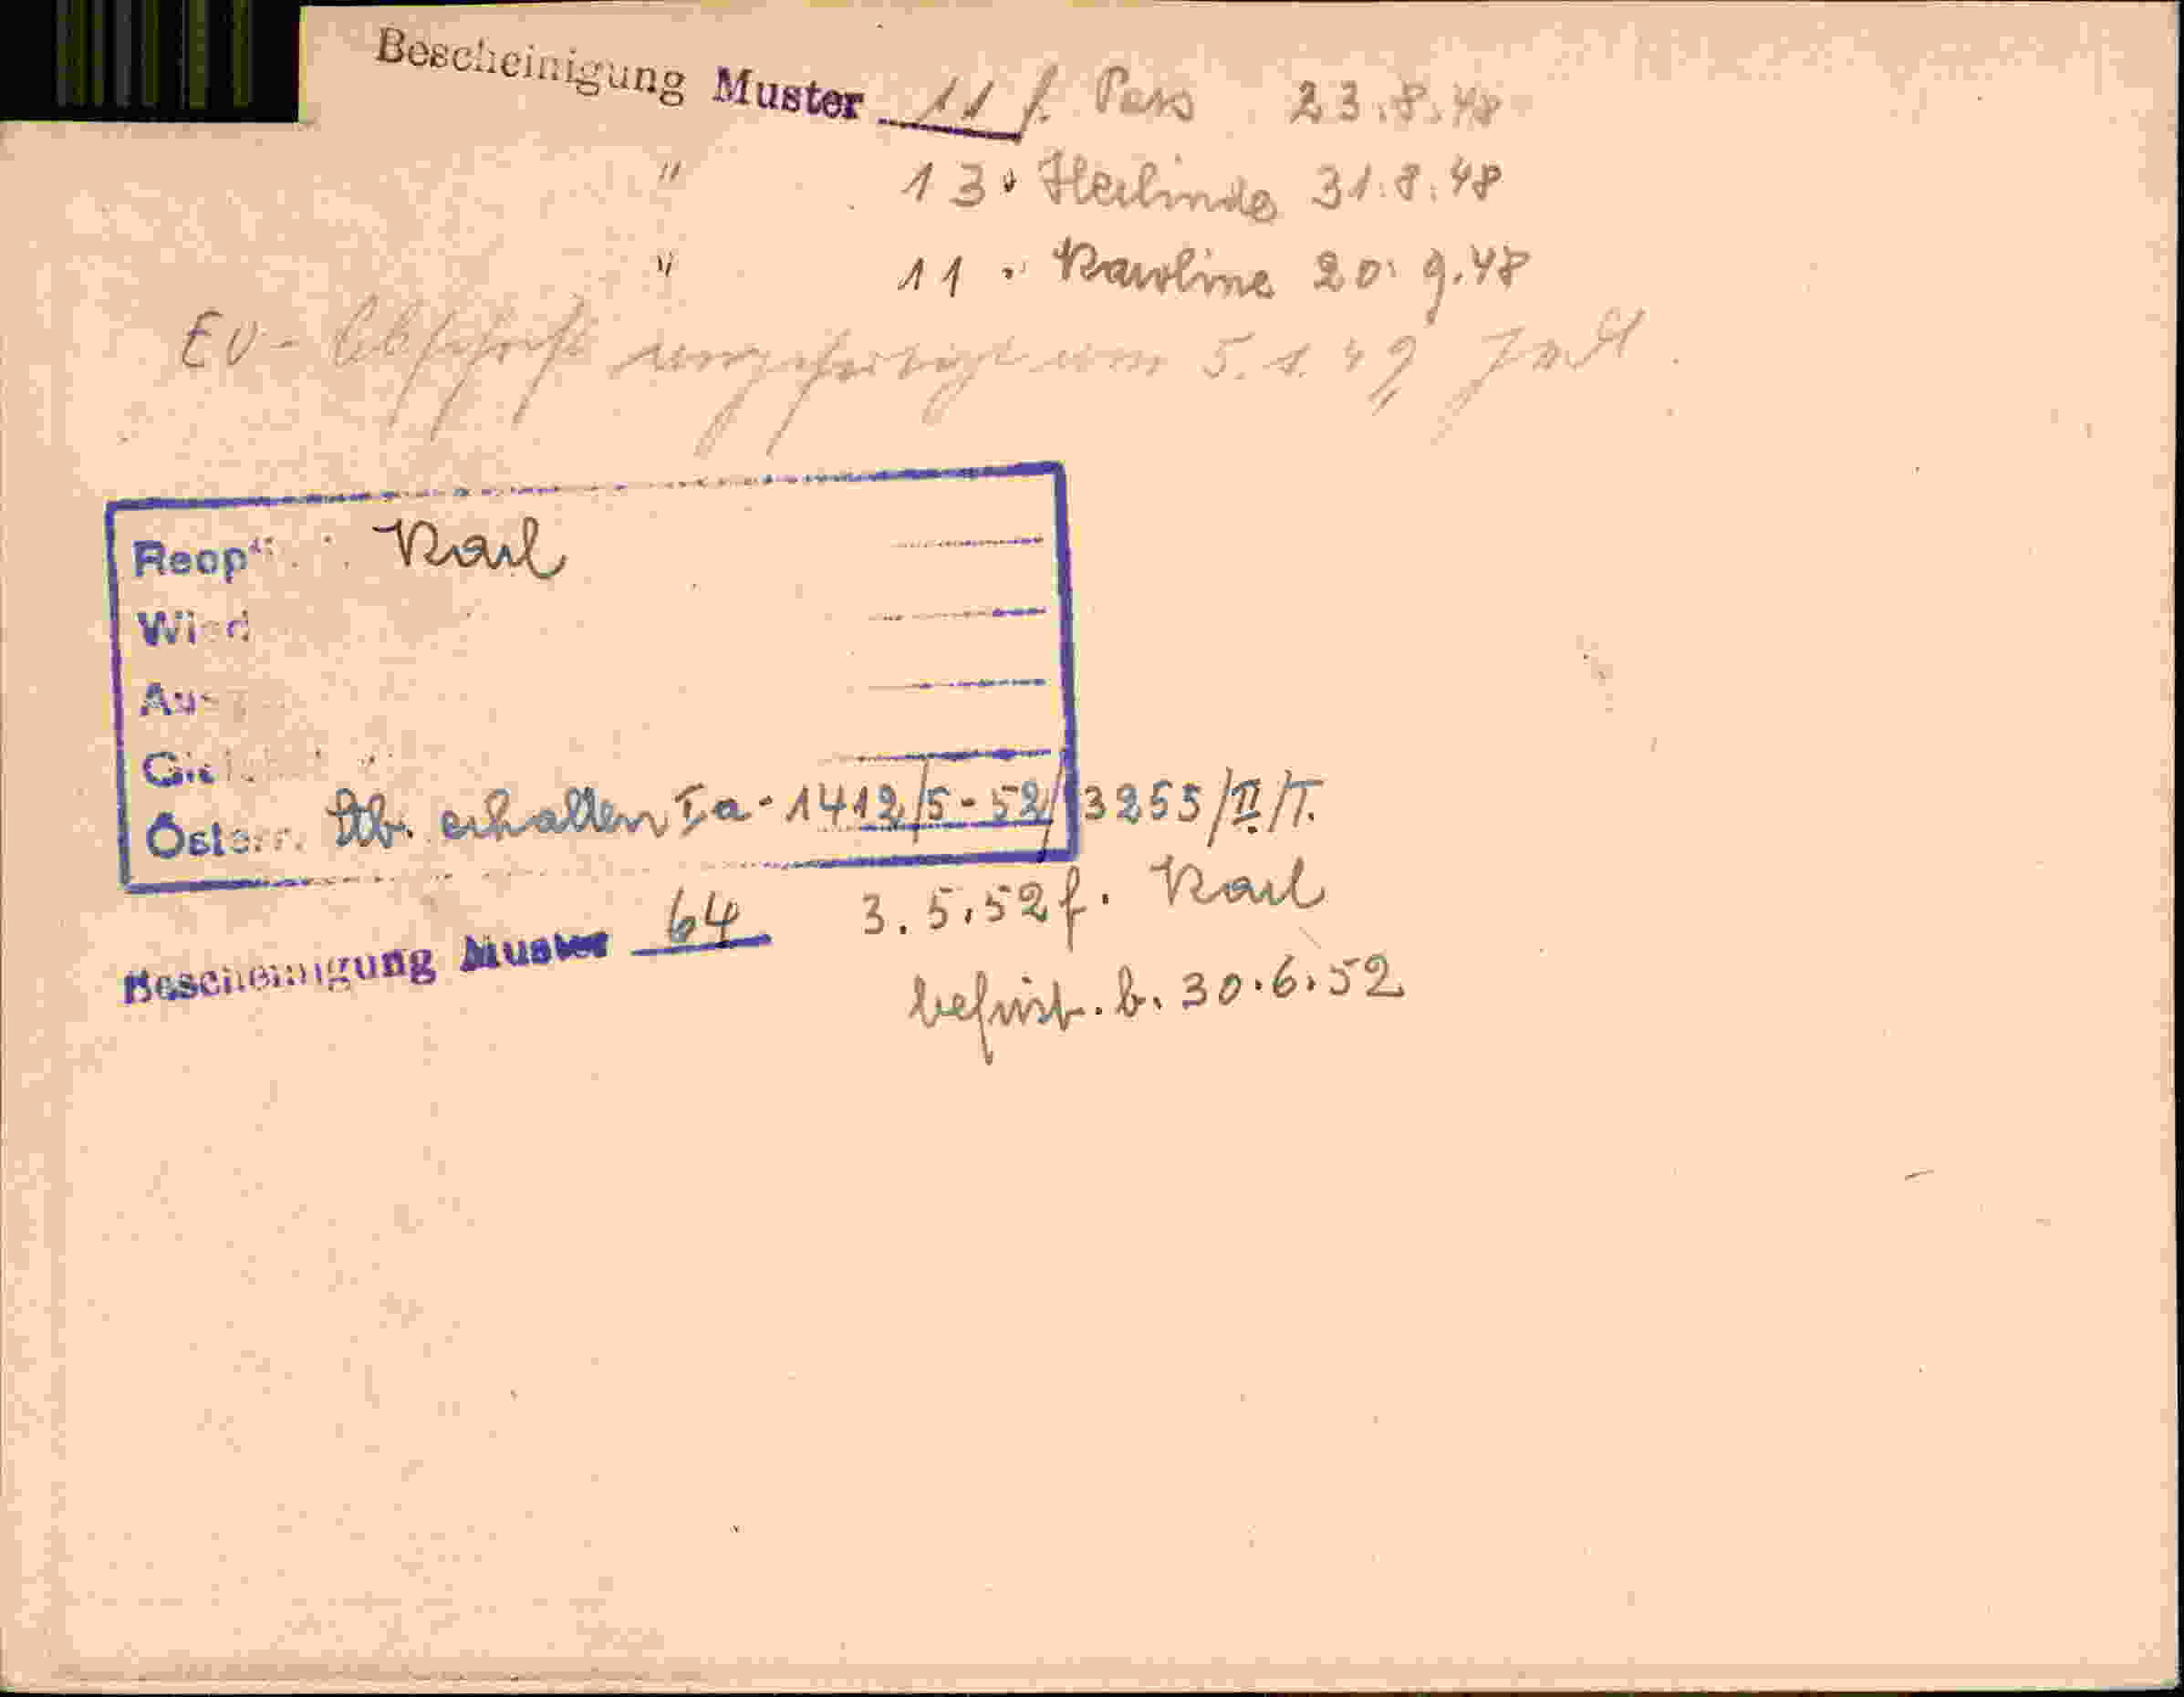 Bescheinigung Muster 11 f. Pass 23.8.48
" 13 " Herlinde 31.8.48
" 11 " Karoline 20.9.48
EV- Abschrift am 5.1.49
Reopt Karl
Wied
Aus
Österr. Stb. erhalten Ia-1412/5-52/3255/II/T.
Bescheinigung Muster 64 3.5.52 f. Karl
befrist. b. 30.6.52